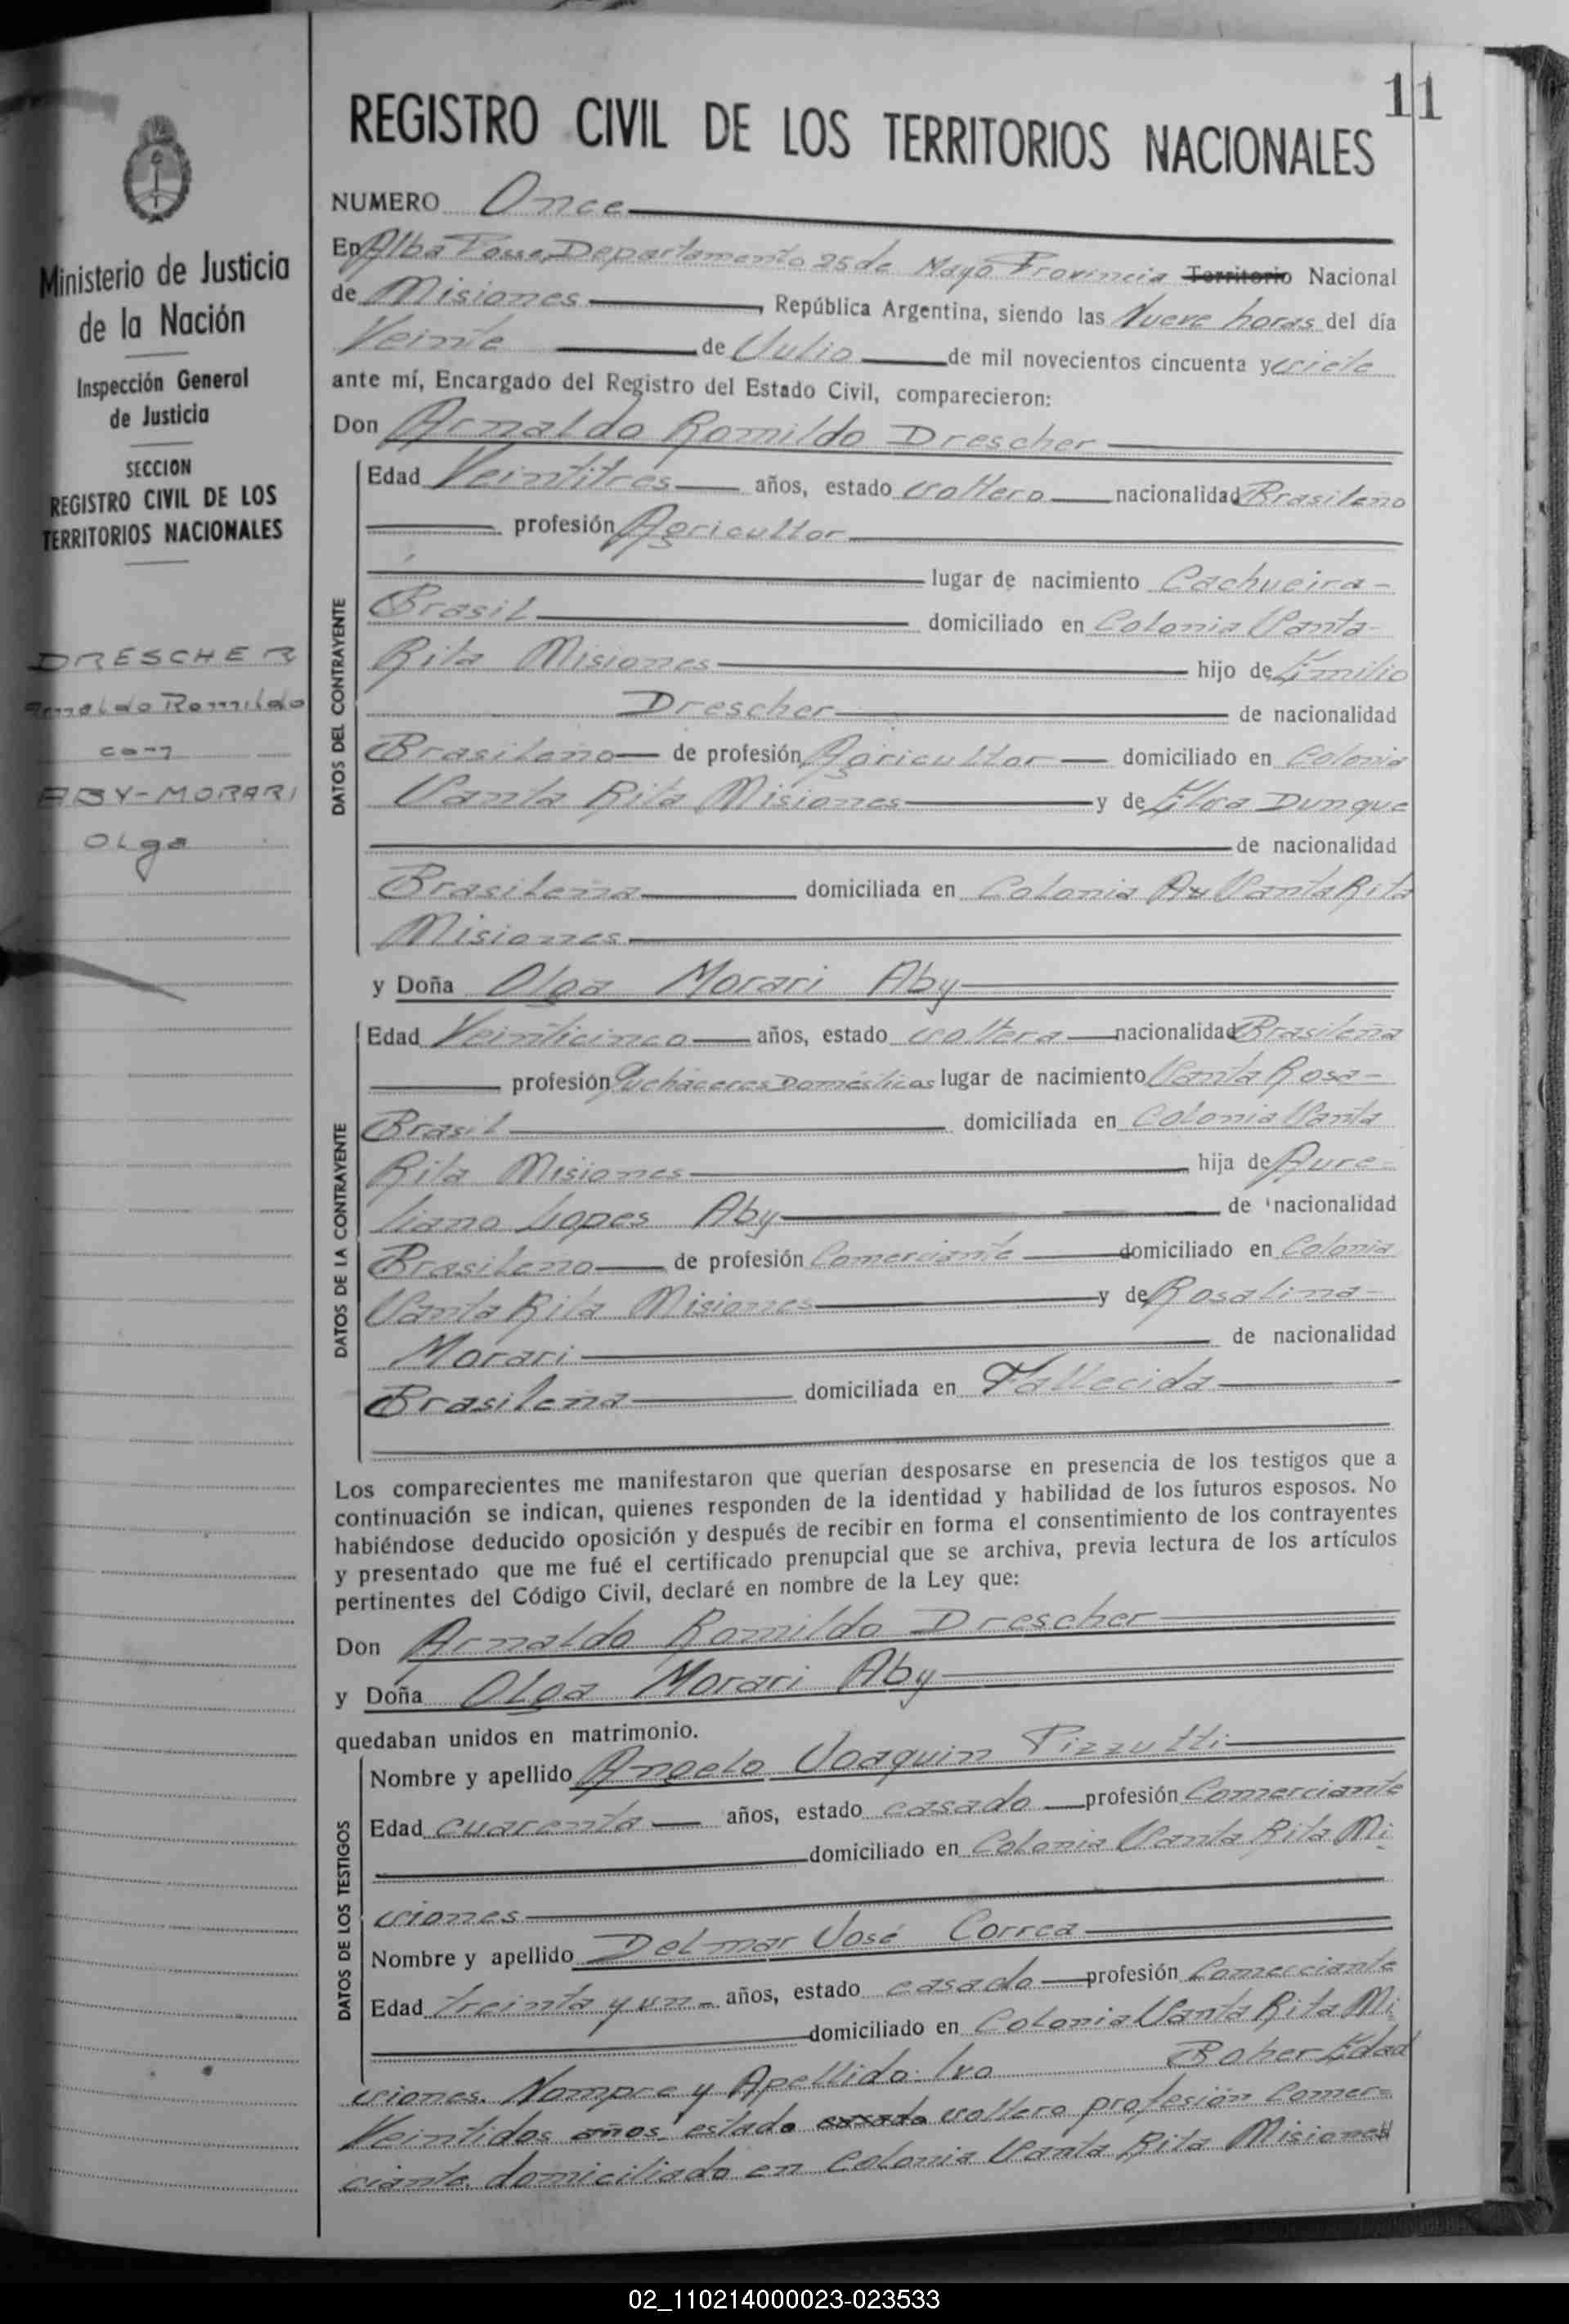 11
REGISTRO CIVIL DE LOS TERRITORIOS NACIONALES
Ministerio de Justicia
de la Nación
Inspección General
de Justicia
SECCION
REGISTRO CIVIL DE LOS
TERRITORIOS NACIONALES
DRESCHER
Arnaldo Romildo
con
ABY-MORARI
Olga
NUMERO Once
En Alba Posse, Departamento 25 de Mayo Provincia Territorio Nacional
de Misiones, República Argentina, siendo las Nueve horas del día
Veinte de Julio de mil novecientos cincuenta y siete
ante mí, Encargado del Registro del Estado Civil, comparecieron:
Don Arnaldo Romildo Drescher
DATOS DEL CONTRAYENTE
Edad Veintitres años, estado soltero nacionalidad Brasileño
profesión Agricultor
lugar de nacimiento Cachueira-
Brasil domiciliado en Colonia Santa
Rita Misiones hijo de Emilio
Drescher de nacionalidad
Brasileño de profesión Agricultor domiciliado en Colonia
Santa Rita Misiones y de Elsa Dunque
de nacionalidad
Brasileña domiciliada en Colonia Santa Rita
Misiones
y Doña Olga Morari Aby
DATOS DE LA CONTRAYENTE
Edad Veinticinco años, estado soltera nacionalidad Brasileña
profesión Quehaceres Domésticos lugar de nacimiento Santa Rosa-
Brasil domiciliada en Colonia Santa
Rita Misiones hija de Aure-
liano Lopes Aby de nacionalidad
Brasileño de profesión Comerciante domiciliado en Colonia
Santa Rita Misiones y de Rosalina-
Morari de nacionalidad
Brasileña domiciliada en Fallecida
Los comparecientes me manifestaron que querían desposarse en presencia de los testigos que a
continuación se indican, quienes responden de la identidad y habilidad de los futuros esposos. No
habiéndose deducido oposición y después de recibir en forma el consentimiento de los contrayentes
y presentado que me fué el certificado prenupcial que se archiva, previa lectura de los artículos
pertinentes del Código Civil, declaré en nombre de la Ley que:
Don Arnaldo Romildo Drescher
y Doña Olga Morari Aby
quedaban unidos en matrimonio.
DATOS DE LOS TESTIGOS
Nombre y apellido Angelo Joaquin Pizzutti
Edad cuarenta años, estado casado profesión Comerciante
domiciliado en Colonia Santa Rita Mi
siones
Nombre y apellido Delmar José Correa
Edad treinta y un años, estado casado profesión Comerciante
domiciliado en Colonia Santa Rita Mi
siones. Nompre y Apellido Ivo Boher Edad
Veintidos años estado casado soltero profesión Comer-
ciante domiciliado en Colonia Santa Rita Misiones
02_110214000023-023533